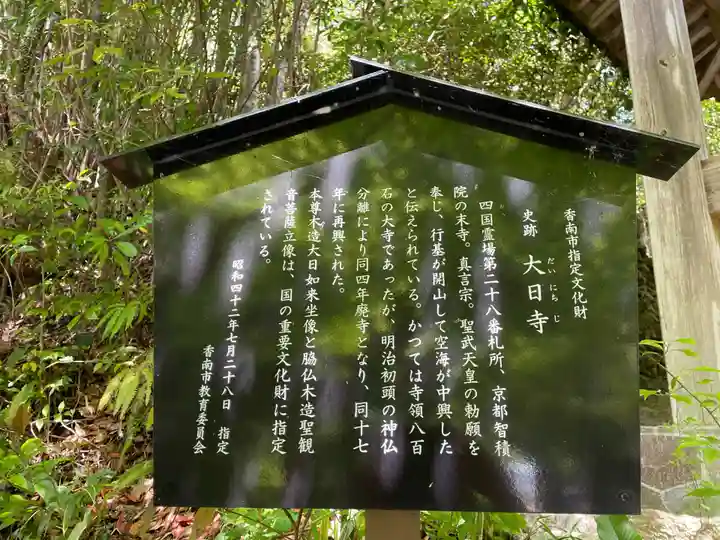 香南市指定文化財
史跡　大日寺
だいにちじ
四国霊場第二十八番札所、京都智積
院の末寺。真言宗。聖武天皇の勅願を
奉じ、行基が開山して空海が中興した
と伝えられている。かつては寺領八百
石の大寺であったが、明治初頭の神仏
分離により同四年廃寺となり、同十七
年に再興された。
本尊木造大日如来坐像と脇仏木造聖観
音菩薩立像は、国の重要文化財に指定
されている。
昭和四十二年七月二十八日　指定
香南市教育委員会